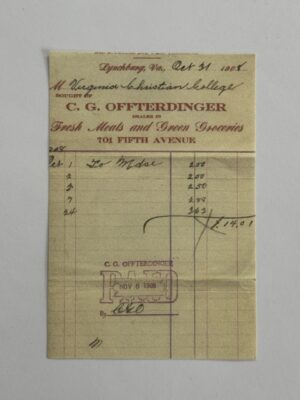 Lynchburg, Va., Oct 31 1908
M Virginia Christian College
BOUGHT OF
C. G. OFFTERDINGER
DEALER IN
Fresh Meats and Green Groceries
701 FIFTH AVENUE
Oct 1 To Mdse 2.00
2 2.00
3 2.50
7
24 $14.01
C. G. OFFTERDINGER
PAID
NOV 6 1908
By